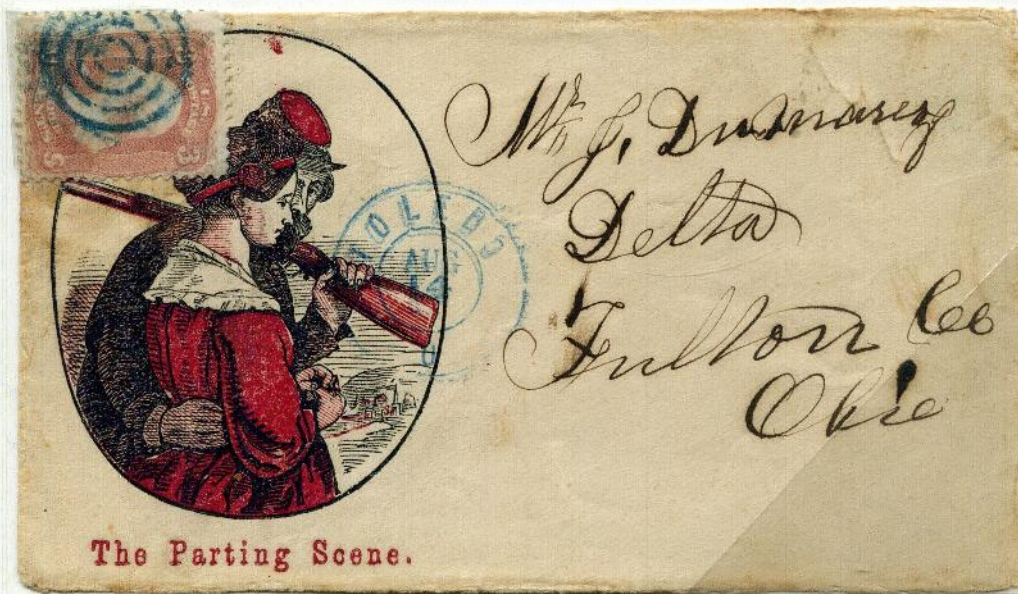 TOLEDO
AUG
Mr J. Dumaresq
Delta
Fulton Co
Ohio
The Parting Scene.
3